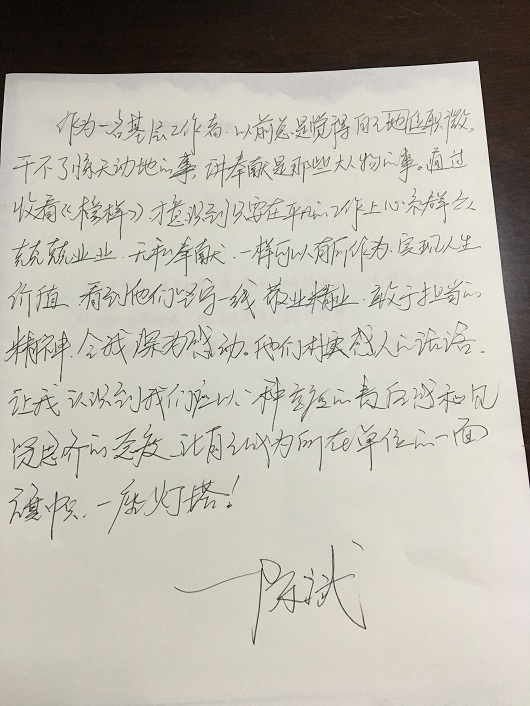 作为一名基层工作者，以前总是觉得自己地位职微，
干不了惊天动地的事，讲奉献是那些大人物的事。通过
收看《榜样》才意识到只要在平凡的工作上心系群众、
兢兢业业、无私奉献，一样可以有所作为，实现人生
价值。看到他们坚守一线、敬业精业、敢于担当的
精神，令我深为感动。他们朴实感人的话语，
让我认识到我们应以一种高度的责任感和见
贤思齐的态度，让自己成为所在单位的一面
旗帜、一座灯塔！